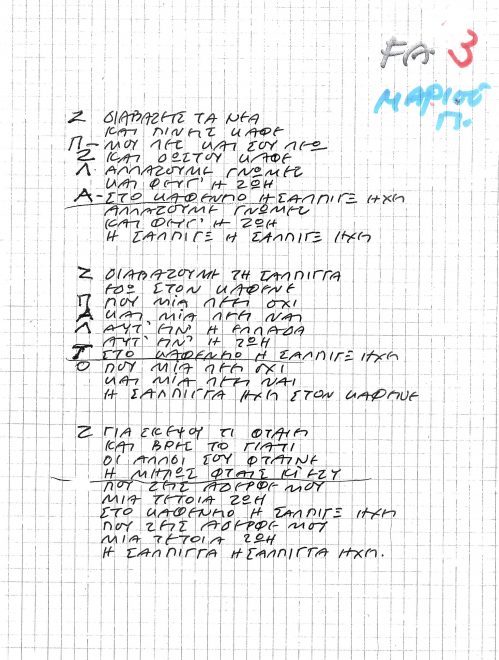 FA 3
ΜΑΡΙΟΥ
Π.
Ζ ΔΙΑΒΑΖΕΙΣ ΤΑ ΝΕΑ
ΚΑΙ ΠΙΝΕΙΣ ΚΑΦΕ
Π - ΜΟΥ ΛΕΣ ΚΑΙ ΣΟΥ ΛΕΩ
Ζ ΚΑΙ ΔΩΣΤΟΥ ΚΑΦΕ
Λ ΑΛΛΑΖΟΥΜΕ ΓΝΩΜΕΣ
ΚΑΙ ΦΕΥΓ' Η ΖΩΗ
Α - ΣΤΟ ΚΑΦΕΝΕΙΟ Η ΣΑΛΠΙΓΞ ΗΧΕΙ
ΑΛΛΑΖΟΥΜΕ ΓΝΩΜΕΣ
ΚΑΙ ΦΕΥΓ' Η ΖΩΗ
Η ΣΑΛΠΙΓΞ Η ΣΑΛΠΙΓΞ ΗΧΕΙ
Ζ ΔΙΑΒΑΖΟΥΜΕ ΤΗ ΣΑΛΠΙΓΓΑ
ΕΔΩ ΣΤΟΝ ΚΑΦΕΝΕ
Π ΠΟΥ ΜΙΑ ΛΕΕΙ ΟΧΙ
Α ΚΑΙ ΜΙΑ ΛΕΕΙ ΝΑΙ
Λ ΑΥΤ' ΕΙΝ' Η ΕΛΛΑΔΑ
ΑΥΤ' ΕΙΝ' Η ΖΩΗ
Τ ΣΤΟ ΚΑΦΕΝΕΙΟ Η ΣΑΛΠΙΓΞ ΗΧΕΙ
Ο ΠΟΥ ΜΙΑ ΛΕΕΙ ΟΧΙ
ΚΑΙ ΜΙΑ ΛΕΕΙ ΝΑΙ
Η ΣΑΛΠΙΓΓΑ ΗΧΕΙ ΣΤΟΝ ΚΑΦΕΝΕ
Ζ ΓΙΑ ΣΚΕΨΟΥ ΤΙ ΦΤΑΙΕΙ
ΚΑΙ ΒΡΕΣ ΤΟ ΓΙΑΤΙ
ΟΙ ΑΛΛΟΙ ΣΟΥ ΦΤΑΙΝΕ
Η ΜΗΠΩΣ ΦΤΑΙΣ ΚΙ ΕΣΥ
ΠΟΥ ΖΕΙΣ ΑΔΕΡΦΕ ΜΟΥ
ΜΙΑ ΤΕΤΟΙΑ ΖΩΗ
ΣΤΟ ΚΑΦΕΝΕΙΟ Η ΣΑΛΠΙΓΞ ΗΧΕΙ
ΠΟΥ ΖΕΙΣ ΑΔΕΡΦΕ ΜΟΥ
ΜΙΑ ΤΕΤΟΙΑ ΖΩΗ
Η ΣΑΛΠΙΓΓΑ Η ΣΑΛΠΙΓΓΑ ΗΧΕΙ.